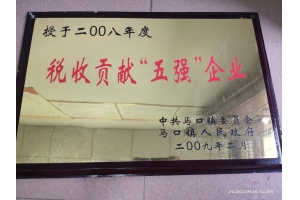 授于二00八年度
税收贡献“五强”企业
中共马口镇委员会
马口镇人民政府
二00九年二月